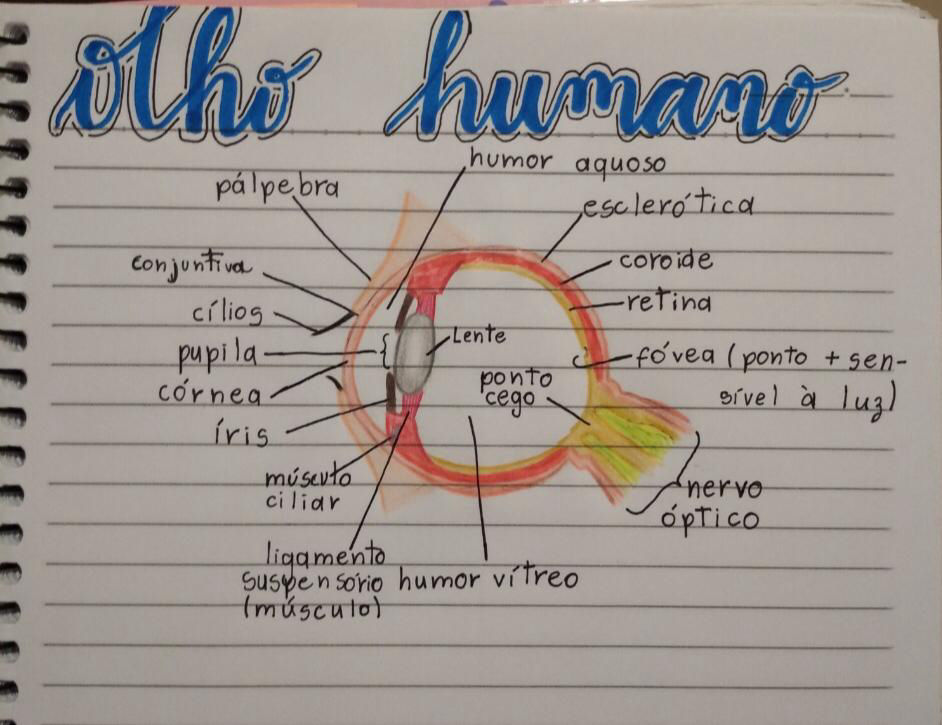 olho humano
humor aquoso
pálpebra
esclerótica
conjuntiva
coroide
cílios
retina
Lente
pupila
fóvea (ponto + sen-
sível à luz)
ponto
cego
córnea
íris
músculo
ciliar
nervo
óptico
ligamento
suspensório
(músculo)
humor vítreo